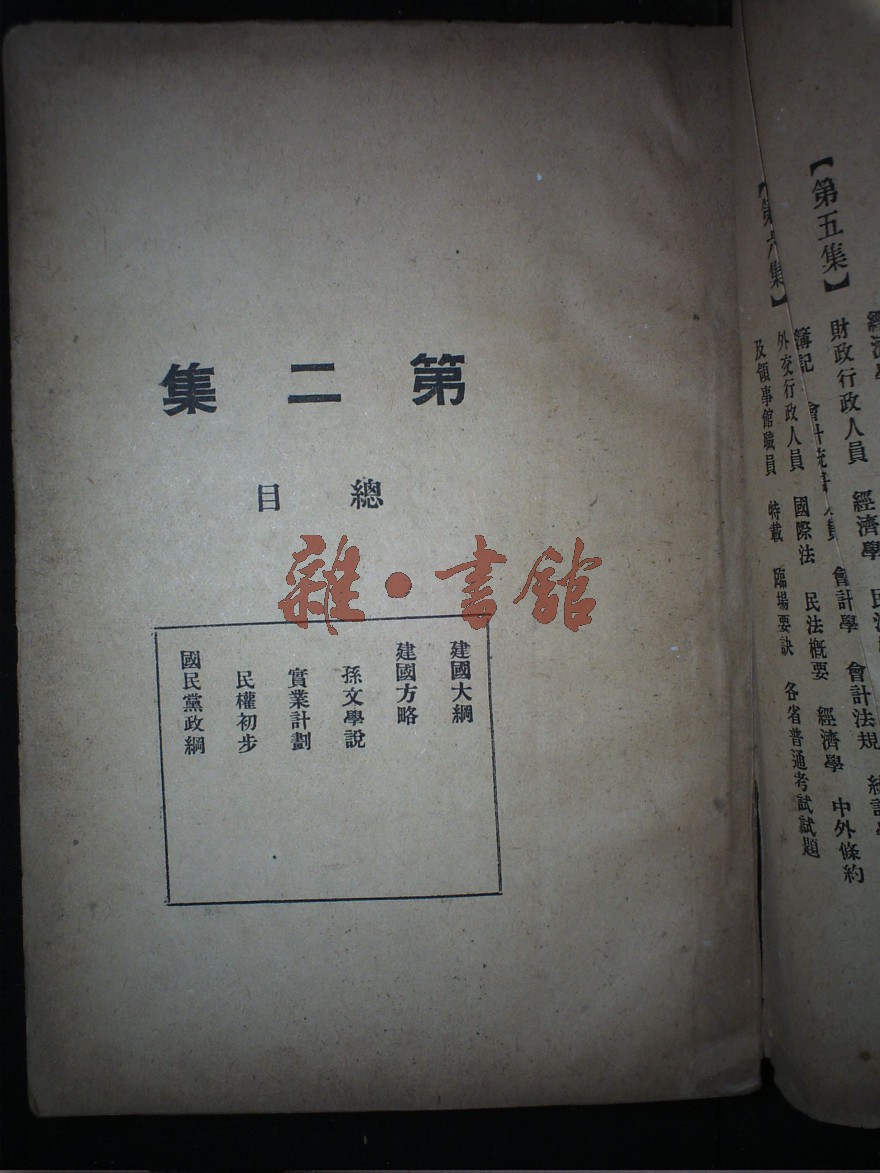 第二集
總目
雜·書館
建國大綱
建國方略
孫文學說
實業計劃
民權初步
國民黨政綱
經濟學
【第五集】
財政行政人員 經濟學
簿記 會計 人員 會計學 會計法規
【第六集】
外交行政人員 國際法 民法概要 經濟學 中外條約
及領事館職員 特載 臨場要訣 各省普通考試試題